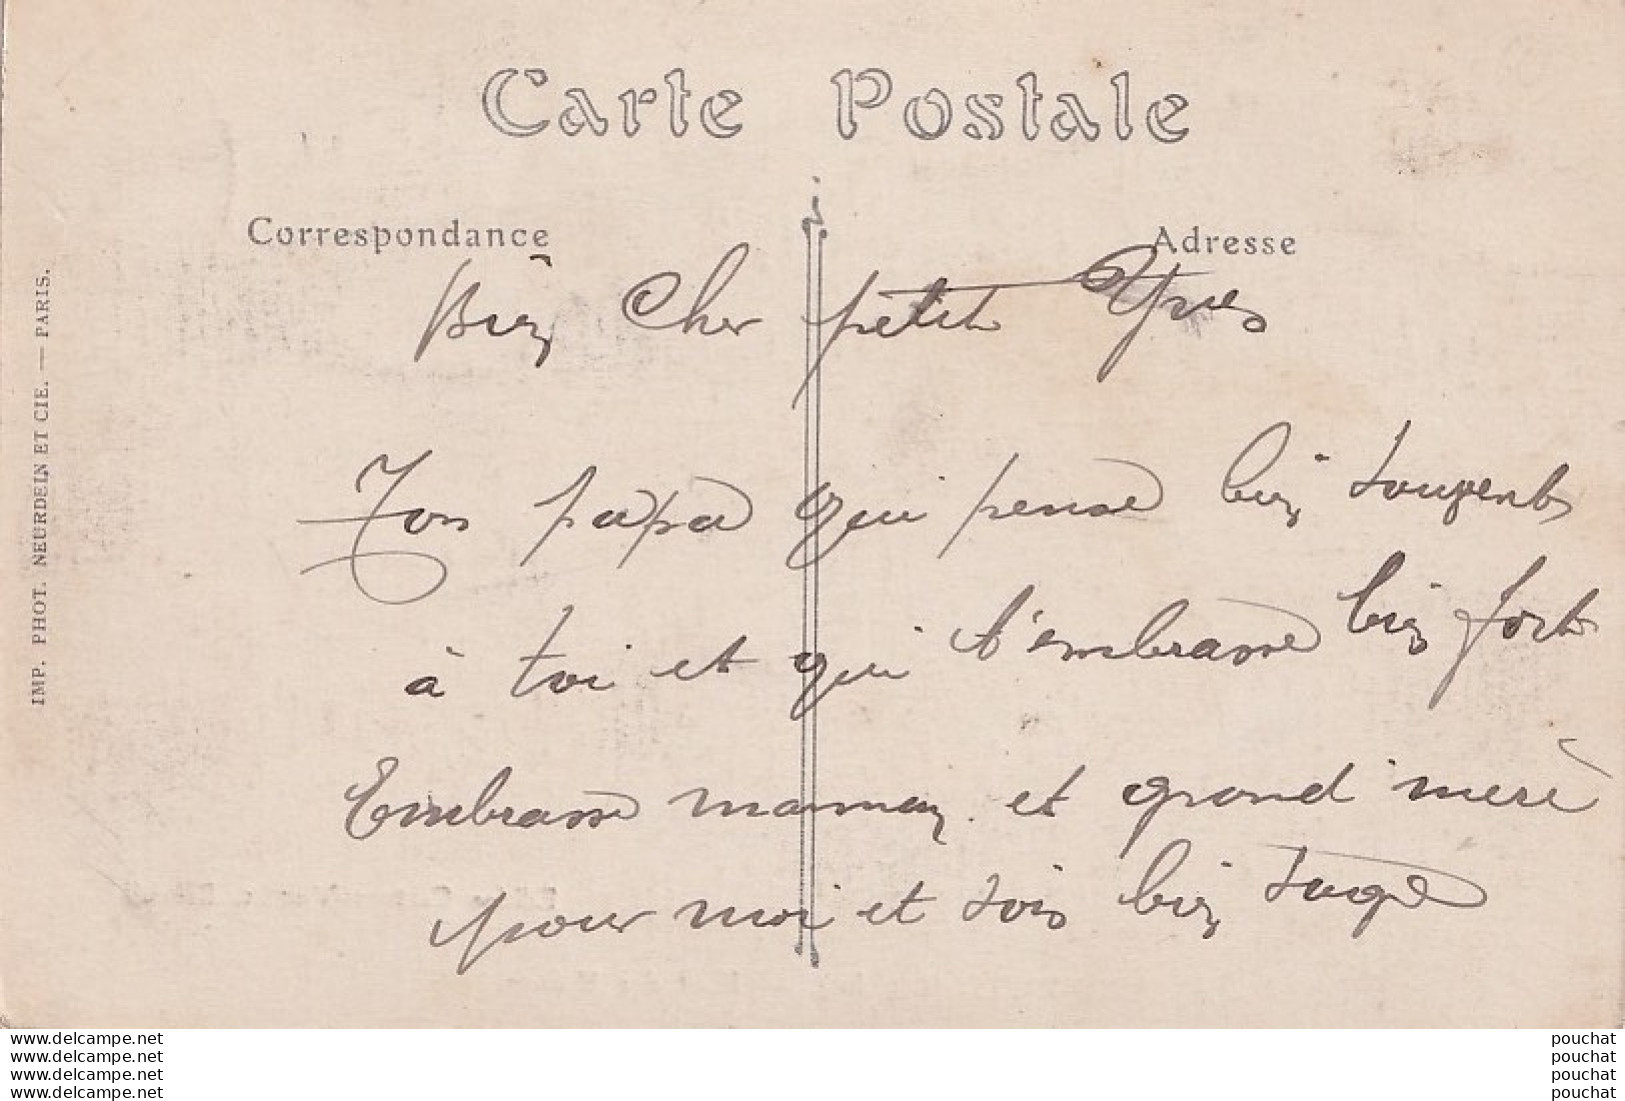 Carte Postale
Correspondance
Adresse
Bien Cher petit Yves
Ton papa qui pense bien souvent
à toi et qui t'embrasse bien fort
Embrasse maman et grand'mère
pour moi et sois bien sage
IMP. PHOT. NEURDEIN ET CIE. — PARIS.
www.delcampe.net
www.delcampe.net
www.delcampe.net
www.delcampe.net
pouchat
pouchat
pouchat
pouchat